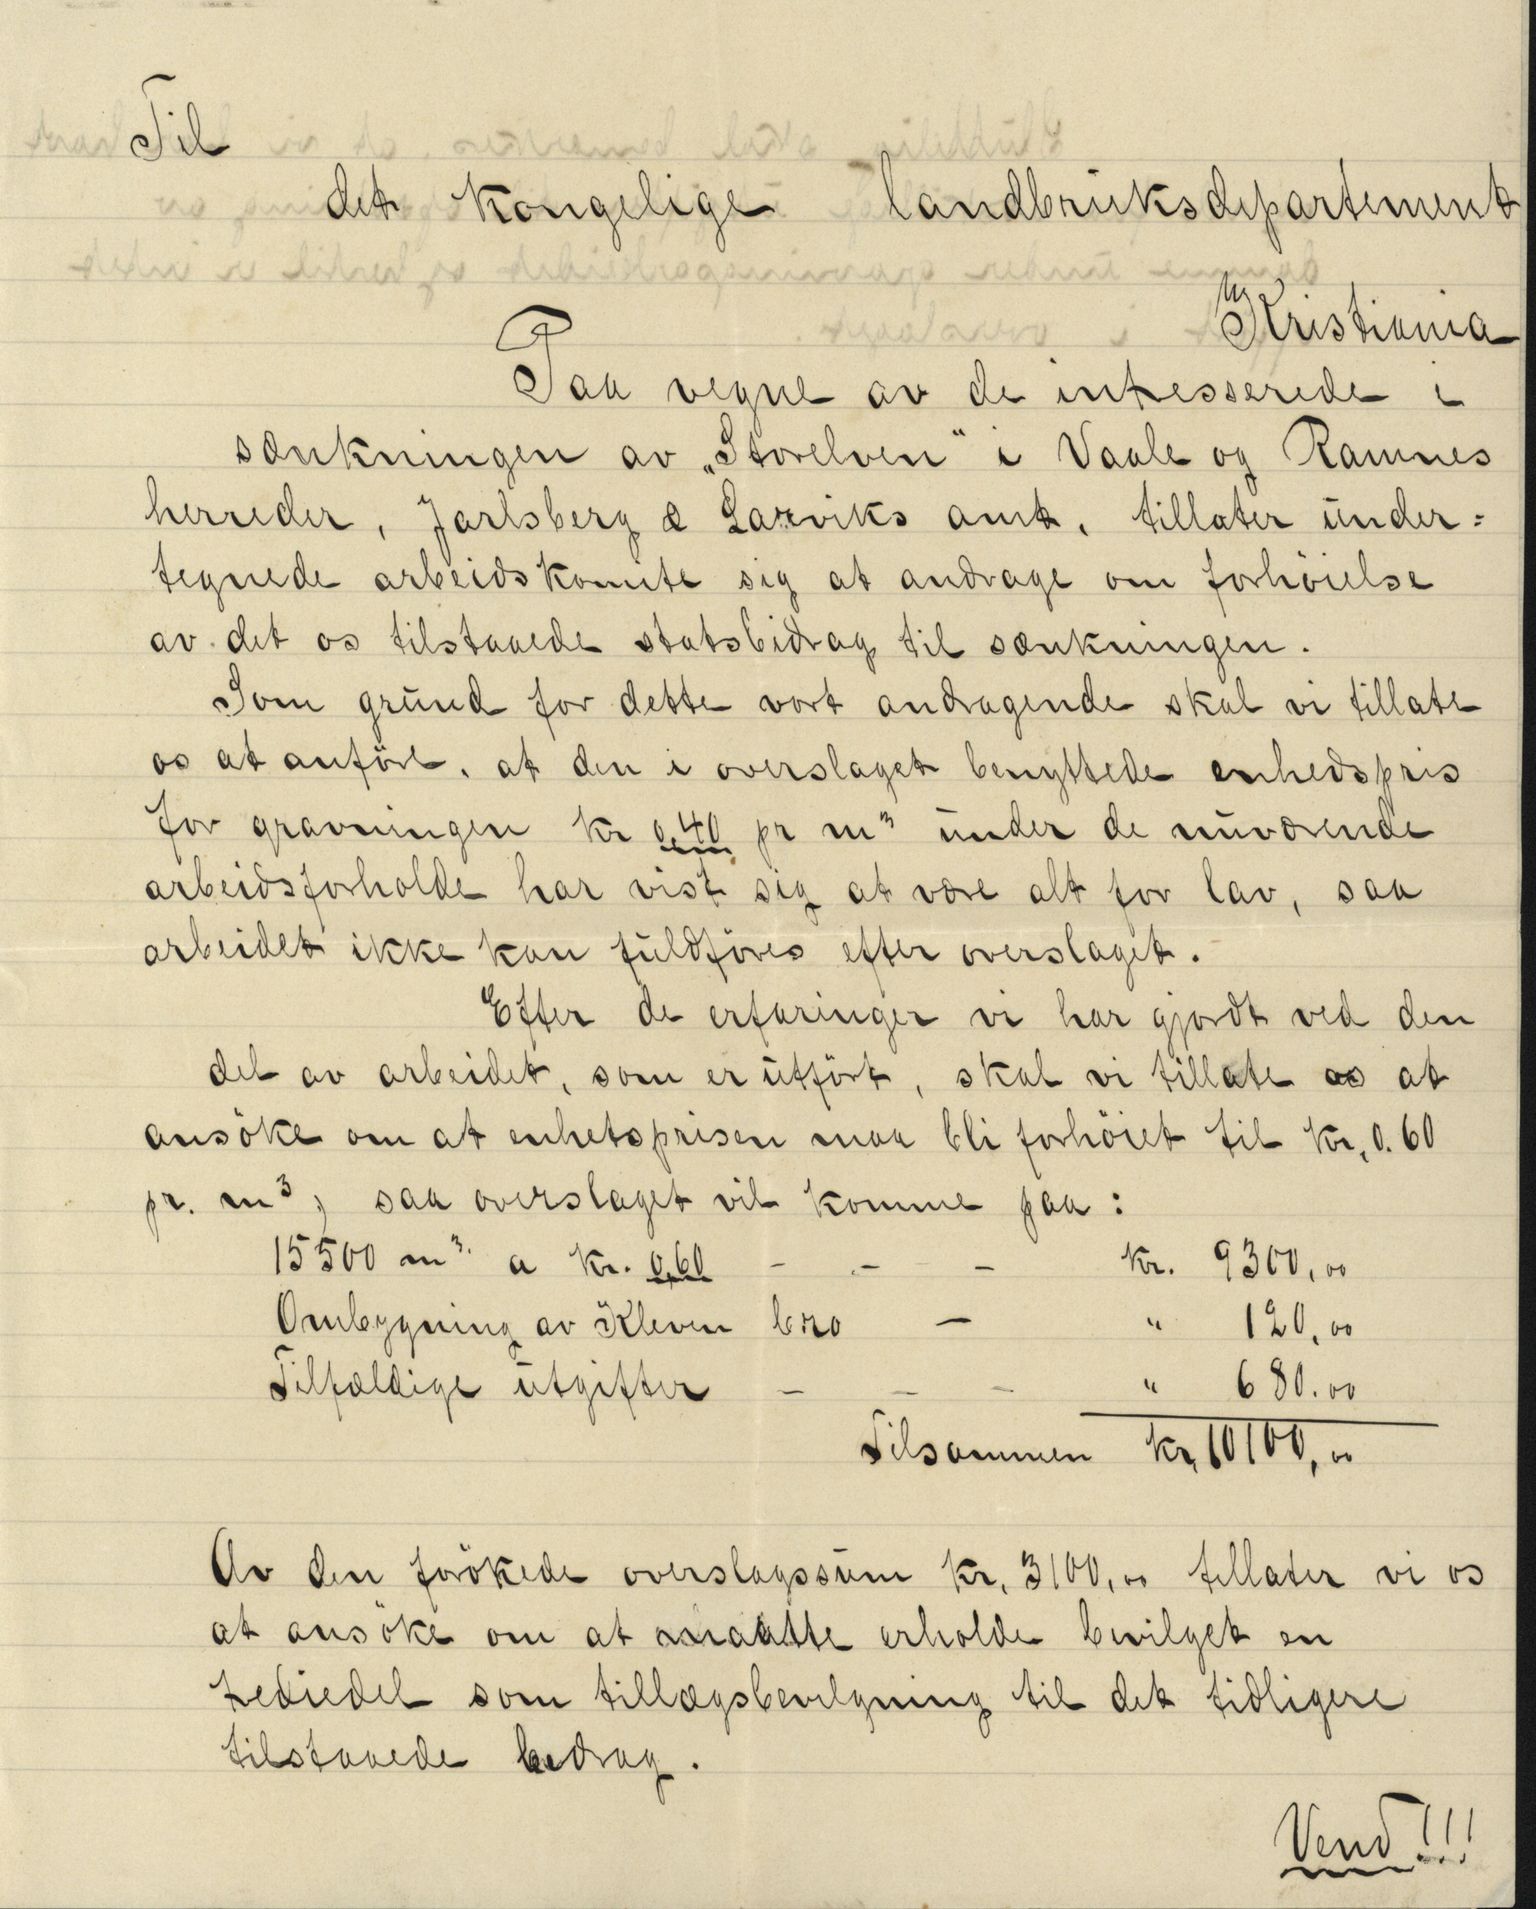 Til
det kongelige landbruksdepartement
Kristiania
Paa vegne av de intresserede i
sænkningen av „Storelven“ i Vaale og Ramnes
herreder, Jarlsberg & Larviks amt, tillater under=
tegnede arbeidskomite sig at andrage om forhöielse
av det os tilstaaede statsbidrag til sænkningen.
Som grund for dette vort andragende skal vi tillate
os at anföre, at den i overslaget benyttede enhedspris
for gravningen kr 0,40 pr m³ under de nuværende
arbeidsforholde har vist sig at være alt for lav, saa
arbeidet ikke kan fuldföres efter overslaget.
Efter de erfaringer vi har gjordt ved den
del av arbeidet, som er utfört, skal vi tillate os at
ansöke om at enhetsprisen maa bli forhöiet til kr. 0.60
pr. m³, saa overslaget vil komme paa:
15500 m³ a kr. 0,60 - - - kr. 9300,00
Ombygning av Kleven bro - " 120,00
Tilfældige utgifter - - - " 680.00
Tilsammen kr. 10100,00
Av den forökede overslagssum kr. 3100,00 tillater vi os
at ansöke om at maatte erholde bevilget en
trediedel som tillægsbevilgning til det tidligere
tilstaaede bidrag.
Vend!!!